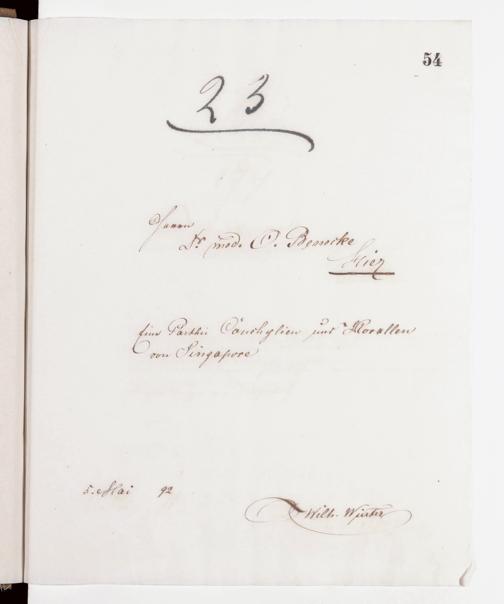 54
23
Herrn
Dr med. O. Benecke
Hier
Eine Parthie Conchylien und Korallen
von Singapore
5. Mai 92
Wilh. Winter